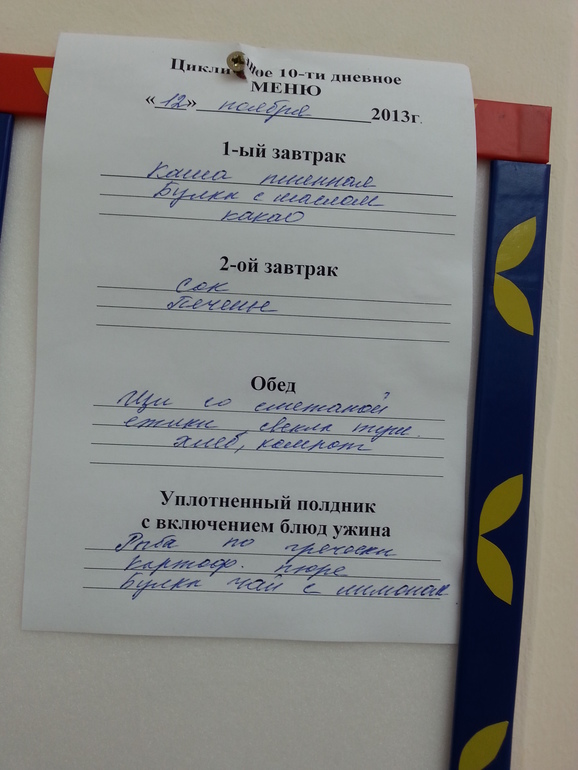 Цикличное 10-ти дневное
МЕНЮ
«12» ноября 2013г.
1-ый завтрак
Каша пшенная
Булка с маслом
какао
2-ой завтрак
Сок
Печенье
Обед
Щи со сметаной
ёжики, свекла туш.
хлеб, компот
Уплотненный полдник
с включением блюд ужина
Рыба по гречески
картоф. пюре
Булка чай с лимоном